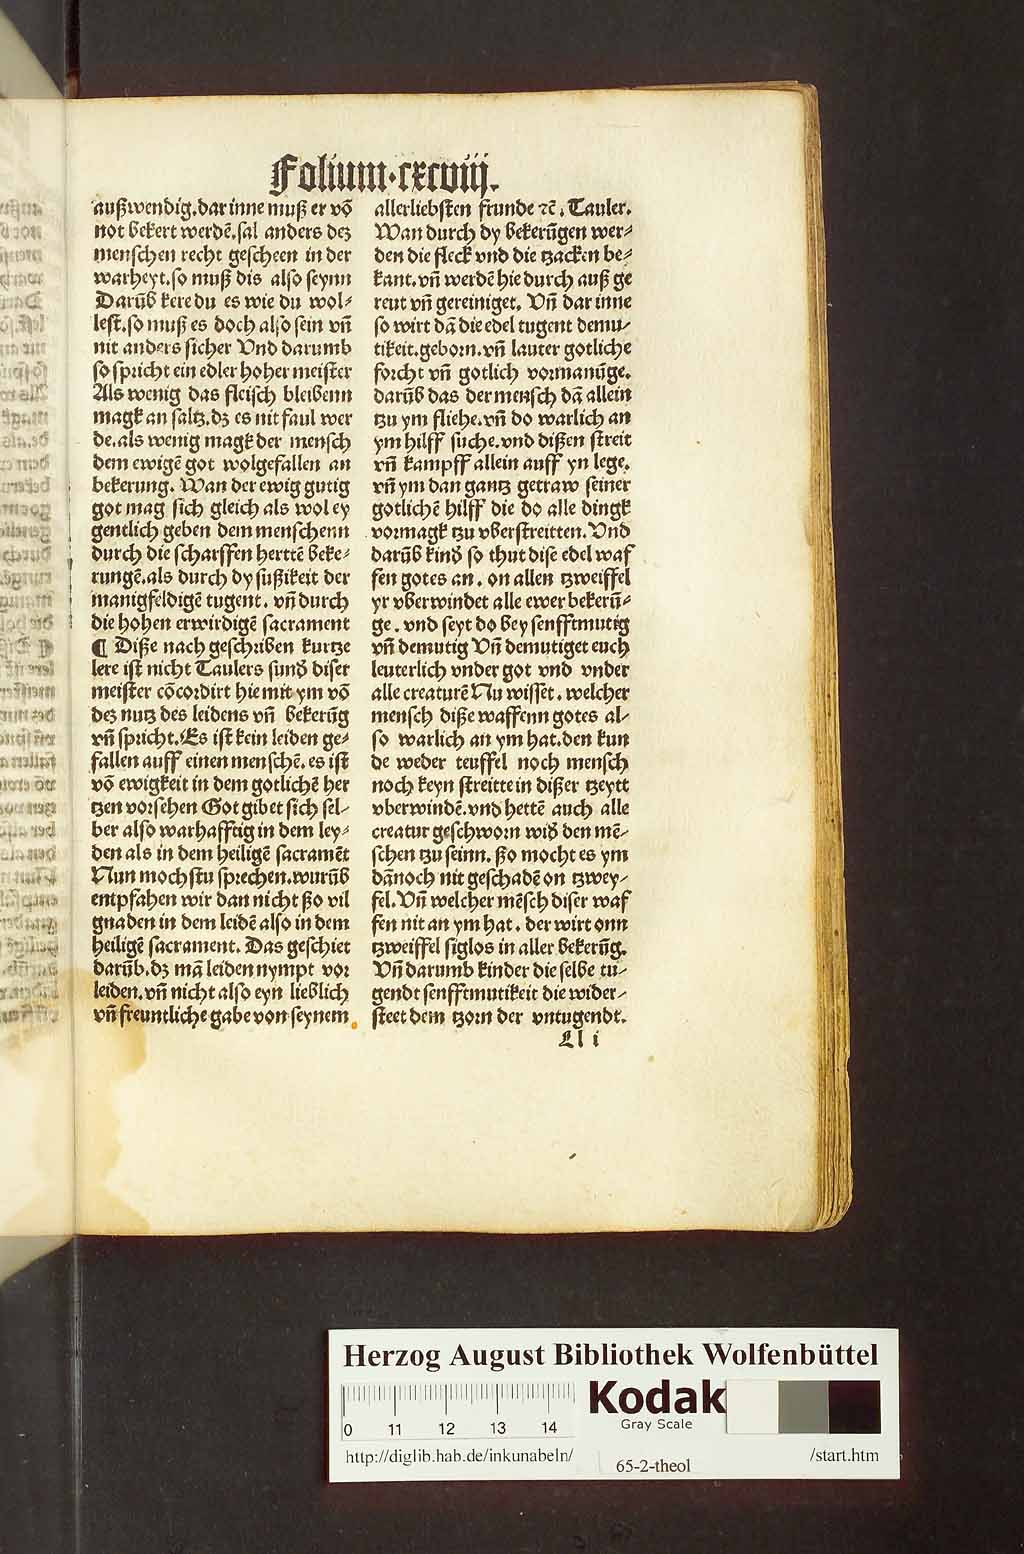 Folium·cxcviij.
außwendig.dar inne muß er vō
not bekert werdē.sal anders dez
menschen recht gescheen in der
warheyt.so muß dis also seynn
Darūb kere du es wie du wol⸗
lest.so muß es doch also sein vn̄
nit anders sicher Vnd darumb
so spricht ein edler hoher meister
Als wenig das fleisch bleibenn
magk an saltz.dz es nit faul wer
de.als wenig magk der mensch
dem ewigē got wolgefallen an
bekerung. Wan der ewig gutig
got mag sich gleich als wol ey
gentlich geben dem menschenn
durch die scharffen hertē beke⸗
rungē.als durch dy sußikeit der
manigfeldigē tugent. vn̄ durch
die hohen erwirdigē sacrament
¶ Diße nach geschriben kurtze
lere ist nicht Taulers sund̕ diser
meister cōcordirt hie mit ym vō
dez nutz des leidens vn̄ bekerūg
vn̄ spricht.Es ist kein leiden ge⸗
fallen auff einen menschē. es ist
vō ewigkeit in dem gotlichē her
tzen vorsehen Got gibet sich sel⸗
ber also warhafftig in dem ley⸗
den als in dem heiligē sacramēt
Nun mochstu sprechen.wurūb
entpfahen wir dan nicht ßo vil
gnaden in dem leidē also in dem
heiligē sacrament. Das geschiet
darūb.dz mā leiden nympt vor
leiden.vn̄ nicht also eyn lieblich
vn̄ freuntliche gabe von seynem
allerliebsten frunde ⁊c̄. Tauler.
Wan durch dy bekerūgen wer⸗
den die fleck vnd die tzacken be⸗
kant.vn̄ werdē hie durch auß ge
reut vn̄ gereiniget. Vn̄ dar inne
so wirt dā die edel tugent demu⸗
tikeit.geborn.vn̄ lauter gotliche
forcht vn̄ gotlich vormanūge.
darūb das der mensch dā allein
tzu ym fliehe.vn̄ do warlich an
ym hilff suche.vnd dißen streit
vn̄ kampff allein auff yn lege.
vn̄ ym dan gantz getraw seiner
gotlichē hilff die do alle dingk
vormagk tzu vberstreitten. Vnd
darūb kind̕ so thut dise edel waf
fen gotes an. on allen tzweiffel
yr vberwindet alle ewer bekerū⸗
ge. vnd seyt do bey senfftmutig
vn̄ demutig Vn̄ demutiget euch
leuterlich vnder got vnd vnder
alle creaturē Nu wisset. welcher
mensch diße waffenn gotes al⸗
so warlich an ym hat.den kun
de weder teuffel noch mensch
noch keyn streitte in dißer tzeytt
vberwindē.vnd hettē auch alle
creatur geschworn wid̕ den mē⸗
schen tzu seinn. ßo mocht es ym
dānoch nit geschadē on tzwey⸗
fel. Vn̄ welcher mēsch diser waf
fen nit an ym hat. der wirt onn
tzweiffel siglos in aller bekerūg.
Vn̄ darumb kinder die selbe tu⸗
gendt senfftmutikeit die wider⸗
steet dem tzorn der vntugendt.
Ll i
Herzog August Bibliothek Wolfenbüttel
0 11 12 13 14
Kodak
Gray Scale
http://diglib.hab.de/inkunabeln/
65-2-theol
/start.htm